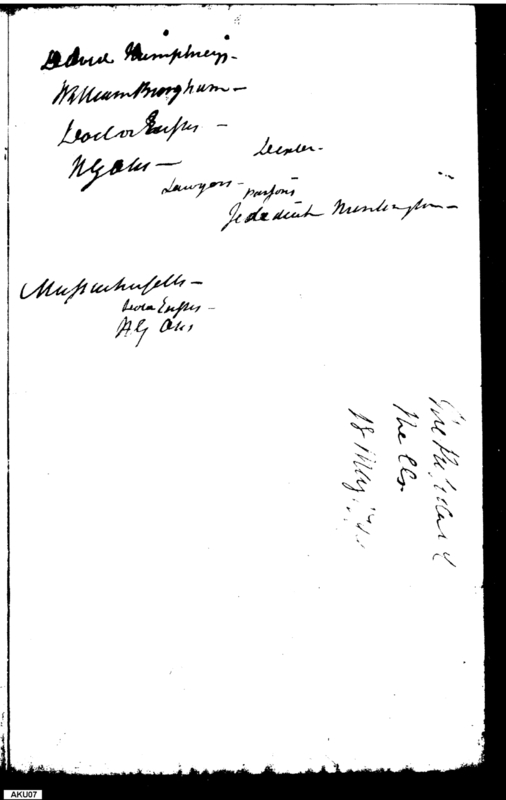 David Humphreys -
William Bingham -
Doctor Eustis -
H G Otis -
Dexter -
Lawyers - Parsons
Jedediah Huntington -
Massachusetts -
Doctor Eustis -
H G Otis
The
18 May
AKU07